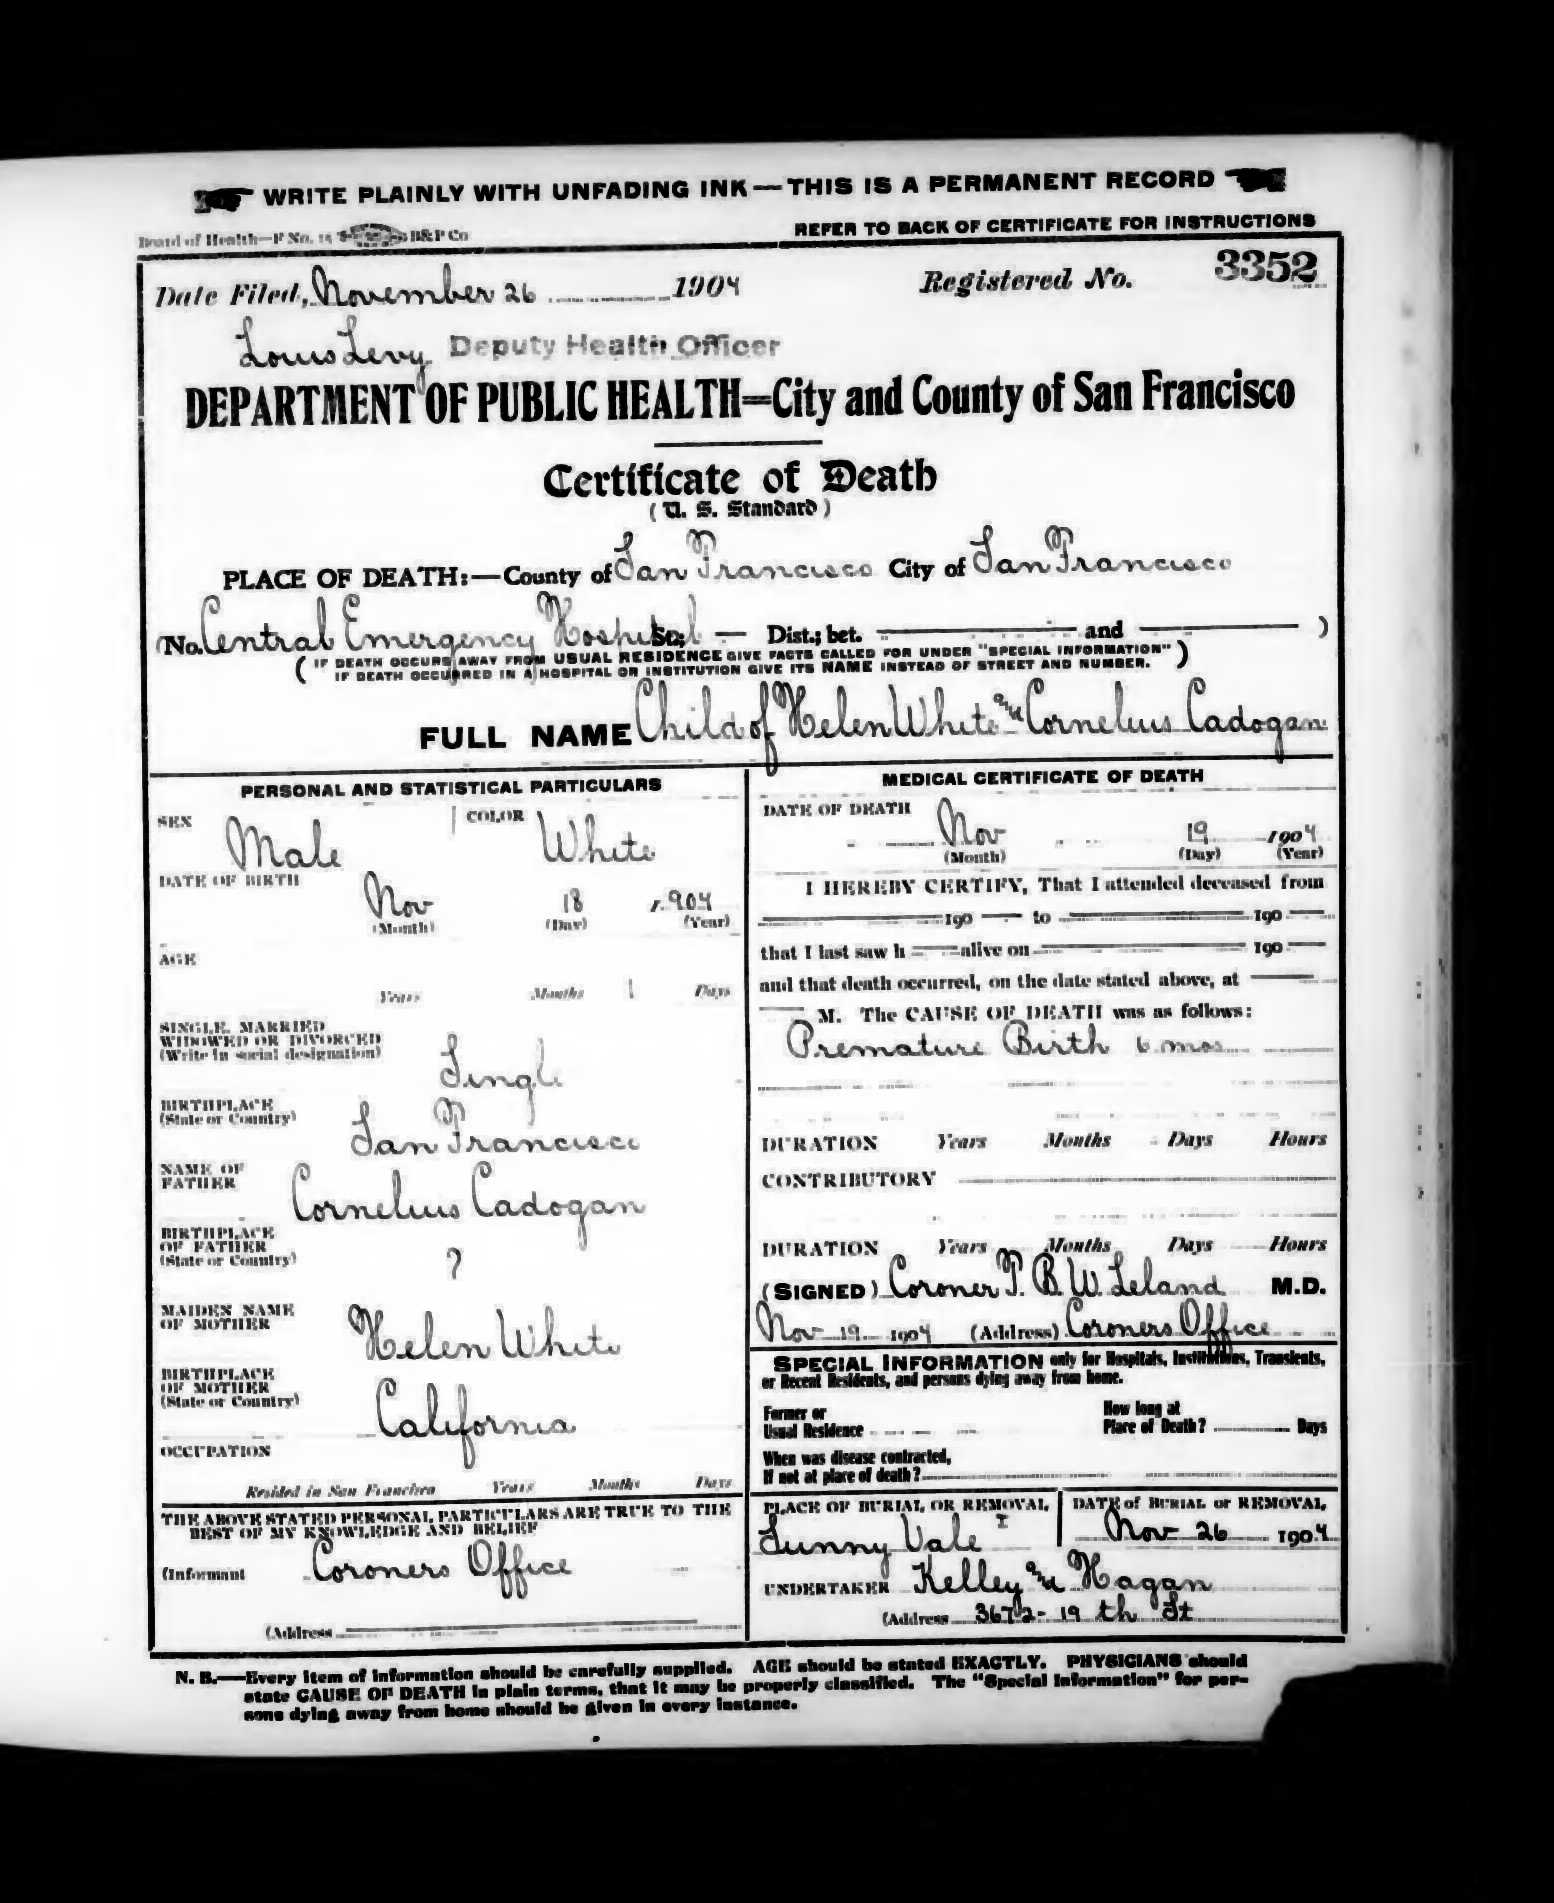 WRITE PLAINLY WITH UNFADING INK — THIS IS A PERMANENT RECORD
Board of Health—F No. 15 B&P Co
REFER TO BACK OF CERTIFICATE FOR INSTRUCTIONS
Date Filed, November 26 1904 Registered No. 3352
Louis Levy Deputy Health Officer
DEPARTMENT OF PUBLIC HEALTH=City and County of San Francisco
Certificate of Death
(U. S. Standard)
PLACE OF DEATH:—County of San Francisco City of San Francisco
(No. Central Emergency Hospital St.; — Dist.; bet. — and — )
(IF DEATH OCCURS AWAY FROM USUAL RESIDENCE GIVE FACTS CALLED FOR UNDER "SPECIAL INFORMATION"
IF DEATH OCCURRED IN A HOSPITAL OR INSTITUTION GIVE ITS NAME INSTEAD OF STREET AND NUMBER.)
FULL NAME Child of Helen White and Cornelius Cadogan
PERSONAL AND STATISTICAL PARTICULARS
SEX Male COLOR White
DATE OF BIRTH Nov 18 1904
(Month) (Day) (Year)
AGE
Years Months 1 Days
SINGLE, MARRIED
WIDOWED OR DIVORCED
(Write in social designation) Single
BIRTHPLACE
(State or Country) San Francisco
NAME OF
FATHER Cornelius Cadogan
BIRTHPLACE
OF FATHER
(State or Country) ?
MAIDEN NAME
OF MOTHER Helen White
BIRTHPLACE
OF MOTHER
(State or Country) California
OCCUPATION
Resided in San Francisco Years Months Days
THE ABOVE STATED PERSONAL PARTICULARS ARE TRUE TO THE
BEST OF MY KNOWLEDGE AND BELIEF
(Informant Coroners Office
(Address
MEDICAL CERTIFICATE OF DEATH
DATE OF DEATH
Nov 19 1904
(Month) (Day) (Year)
I HEREBY CERTIFY, That I attended deceased from
— 190 — to — 190 —
that I last saw h — alive on — 190 —
and that death occurred, on the date stated above, at —
— M. The CAUSE OF DEATH was as follows:
Premature Birth 6 mos
DURATION Years Months Days Hours
CONTRIBUTORY
DURATION Years Months Days Hours
(SIGNED) Coroner T. B. W. Leland M.D.
Nov 19 1904 (Address) Coroners Office
SPECIAL INFORMATION only for Hospitals, Institutions, Transients,
or Recent Residents, and persons dying away from home.
Former or
Usual Residence
How long at
Place of Death? Days
When was disease contracted,
If not at place of death?
PLACE OF BURIAL OR REMOVAL
Sunny Vale I
DATE of BURIAL or REMOVAL
Nov 26 1904
UNDERTAKER Kelley and Hagan
(Address 3672- 19th St
N. B.—Every item of information should be carefully supplied. AGE should be stated EXACTLY. PHYSICIANS should
state CAUSE OF DEATH in plain terms, that it may be properly classified. The "Special Information" for per-
sons dying away from home should be given in every instance.